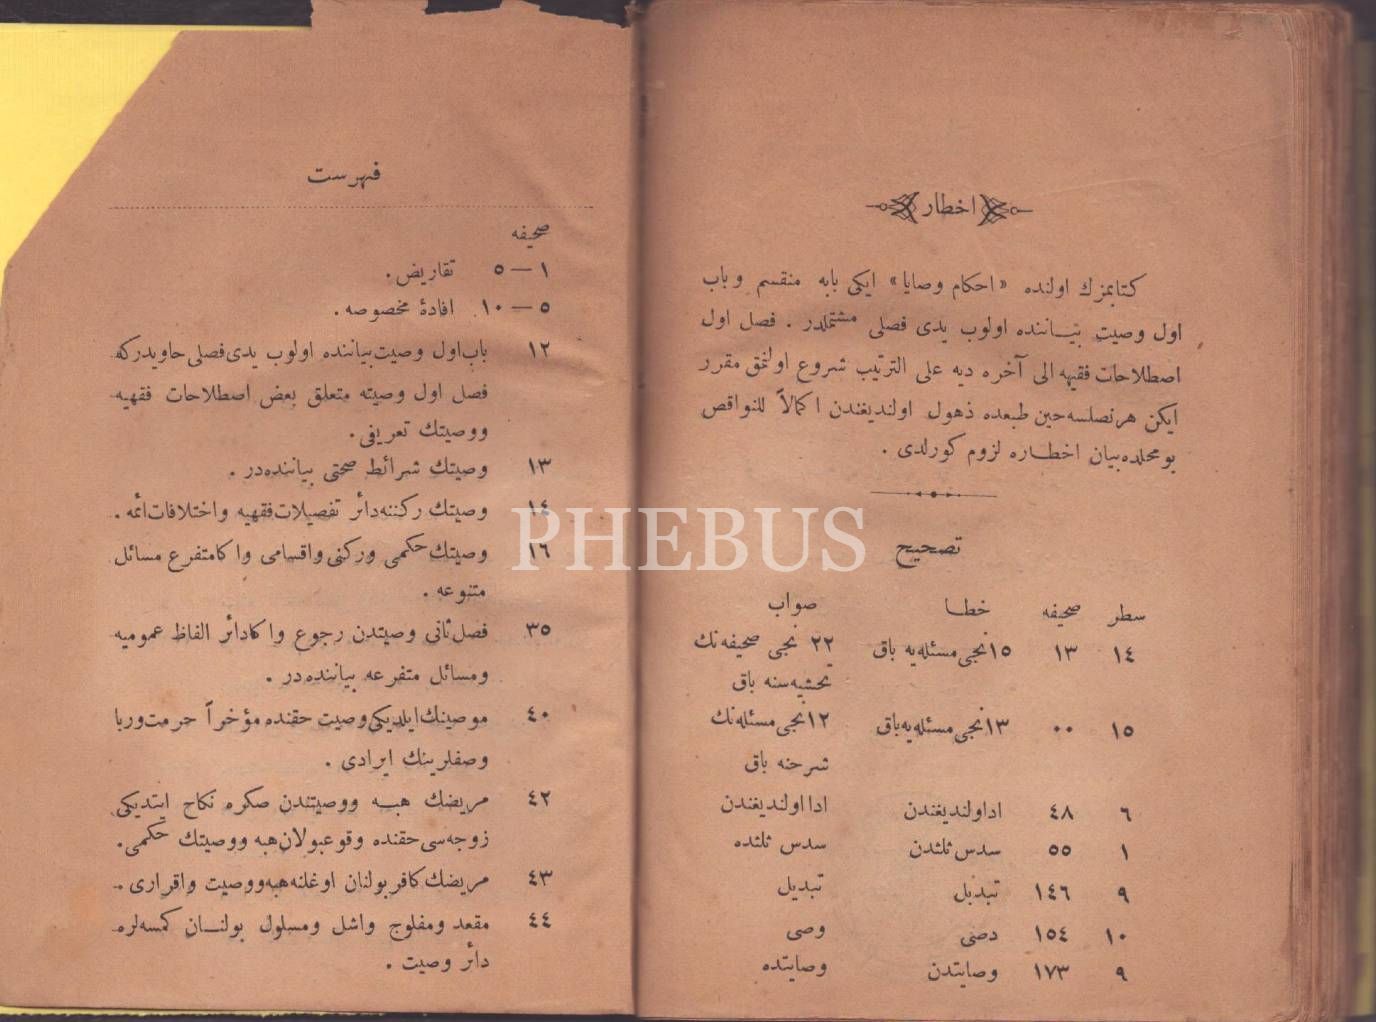 اخطار
كتابمزك اولنده «احكام وصايا» ايكی بابه منقسم و باب
اول وصيت بيـاننده اولوب يدی فصلی مشتملدر . فصل اول
اصطلاحات فقيهه الی آخره ديه علی الترتيب شروع اولنمق مقرر
ايكن هر نصلسه حين طبعده ذهول اولنديغندن اكمالاً للنواقص
بو محلده بيان اخطاره لزوم كورلدی .
تصحيح
سطر صحيفه خطـا صواب
١٤ ١٣ ١٥ نجی مسئله يه باق ٢٢ نجی صحيفه نك
تحشيه سنه باق
١٥ ٠٠ ١٣ نجی مسئله يه باق ١٢ نجی مسئله نك
شرحنه باق
٦ ٤٨ اداولنديغندن ادا اولنديغندن
١ ٥٥ سدس ثلثدن سدس ثلثده
٩ ١٤٦ تبدبل تبديل
١٠ ١٥٤ دصی وصی
٩ ١٧٣ وصايتدن وصايتده
فهرست
صحيفه
١ — ٥ تقاريض .
٥ — ١٠ افادۀ مخصوصه .
١٢ باب اول وصيت بياننده اولوب يدی فصلی حاويدركه
فصل اول وصيته متعلق بعض اصطلاحات فقهيه
ووصيتك تعريفی .
١٣ وصيتك شرائط صحتی بياننده در .
١٤ وصيتك ركننه دائر تفصيلات فقهيه و اختلافات ائمه .
١٦ وصيتك حكمی وركنی و اقسامی و اكا متفرع مسائل
متنوعه .
٣٥ فصل ثانی وصيتدن رجوع و اكا دائر الفاظ عموميه
ومسائل متفرعه بياننده در .
٤٠ موصينك ايلديكی وصيت حقنده مؤخراً حرمت وربا
وصفلرينك ايرادی .
٤٢ مريضك هبـه ووصيتندن صكره نكاح ايتديكی
زوجه سی حقنده وقوعبولان هبه ووصيتك حكمی .
٤٣ مريضك كافر بولنان اوغلنه هبه ووصيت واقراری .
٤٤ مقعد ومفلوج واشل ومسلول بولنـان كمسه لره
دائر وصيت .
PHEBUS